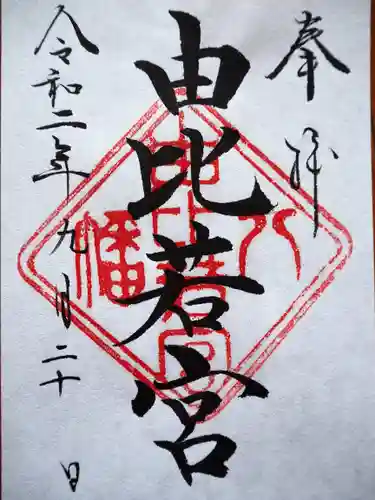 奉拝
由比若宮
令和二年九月二十日
八幡